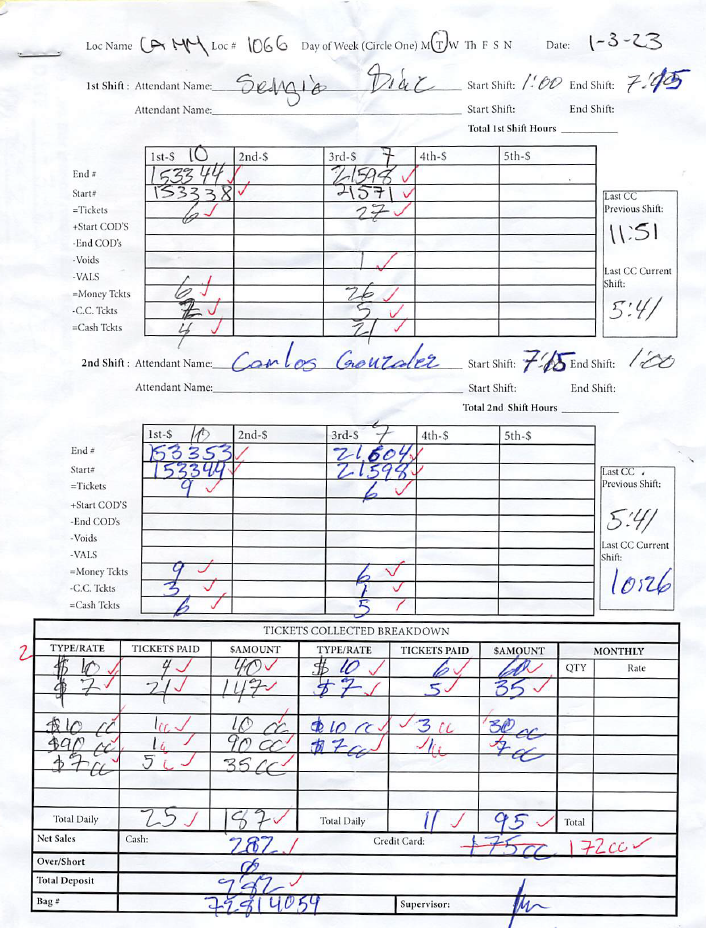 Loc Name CAMM Loc # 1066 Day of Week (Circle One) M T W Th F S N Date: 1-3-23
1st Shift : Attendant Name: Sergio Diaz Start Shift: 1:00 End Shift: 7:15
Attendant Name: Start Shift: End Shift:
Total 1st Shift Hours
1st-$ 10 2nd-$ 3rd-$ 7 4th-$ 5th-$
End # 153344 21598
Start# 153338 21571
=Tickets 6 27
+Start COD'S
-End COD's
-Voids 1
-VALS
=Money Tckts 6 26
-C.C. Tckts 2 5
=Cash Tckts 4 21
Last CC
Previous Shift:
11:51
Last CC Current
Shift:
5:41
2nd Shift : Attendant Name: Carlos Gonzalez Start Shift: 7:15 End Shift: 1:00
Attendant Name: Start Shift: End Shift:
Total 2nd Shift Hours
1st-$ 10 2nd-$ 3rd-$ 7 4th-$ 5th-$
End # 153353 21604
Start# 153344 21598
=Tickets 9 6
+Start COD'S
-End COD's
-Voids
-VALS
=Money Tckts 9 6
-C.C. Tckts 3 1
=Cash Tckts 6 5
Last CC
Previous Shift:
5:41
Last CC Current
Shift:
10:26
TICKETS COLLECTED BREAKDOWN
2 TYPE/RATE TICKETS PAID $AMOUNT TYPE/RATE TICKETS PAID $AMOUNT MONTHLY
$10 4 40 $10 6 60 QTY Rate
$7 21 147 $7 5 35
$10 cc 1cc 10 cc $10 cc 3 cc 30 cc
$90 cc 1c 90 cc $7 cc 1cc 7 cc
$7 cc 5 c 35 cc
Total Daily 25 187 Total Daily 11 95 Total
Net Sales Cash: 282 Credit Card: 175cc 172cc
Over/Short 0
Total Deposit 282
Bag # 72814059 Supervisor: